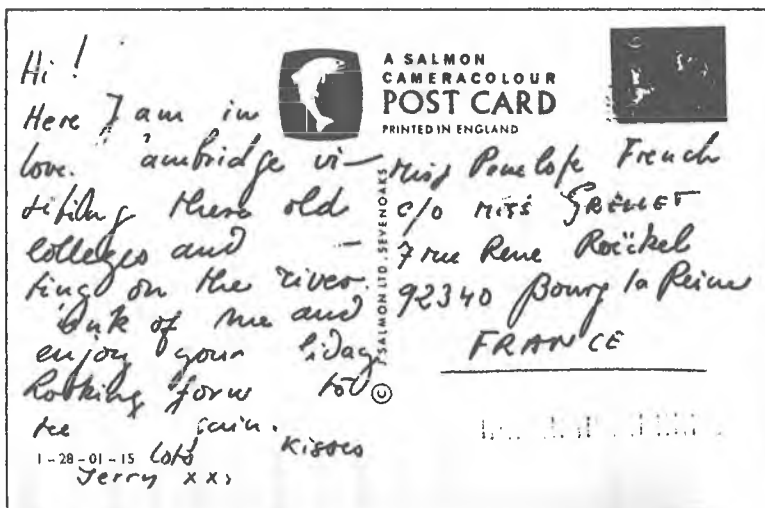 Hi !
Here I am in
love. ambridge vi-
siting these old
colleges and —
ting on the river.
ink of me and
enjoy your liday
Looking forw to
see gain.
Lots Kisses
Jerry xxx
1-28-01-15
A SALMON
CAMERACOLOUR
POST CARD
PRINTED IN ENGLAND
J SALMON LTD, SEVENOAKS ©
Miss Penelope French
c/o MISS GRELLET
7 rue Rene Roëckel
92340 Bourg la Reine
FRANCE